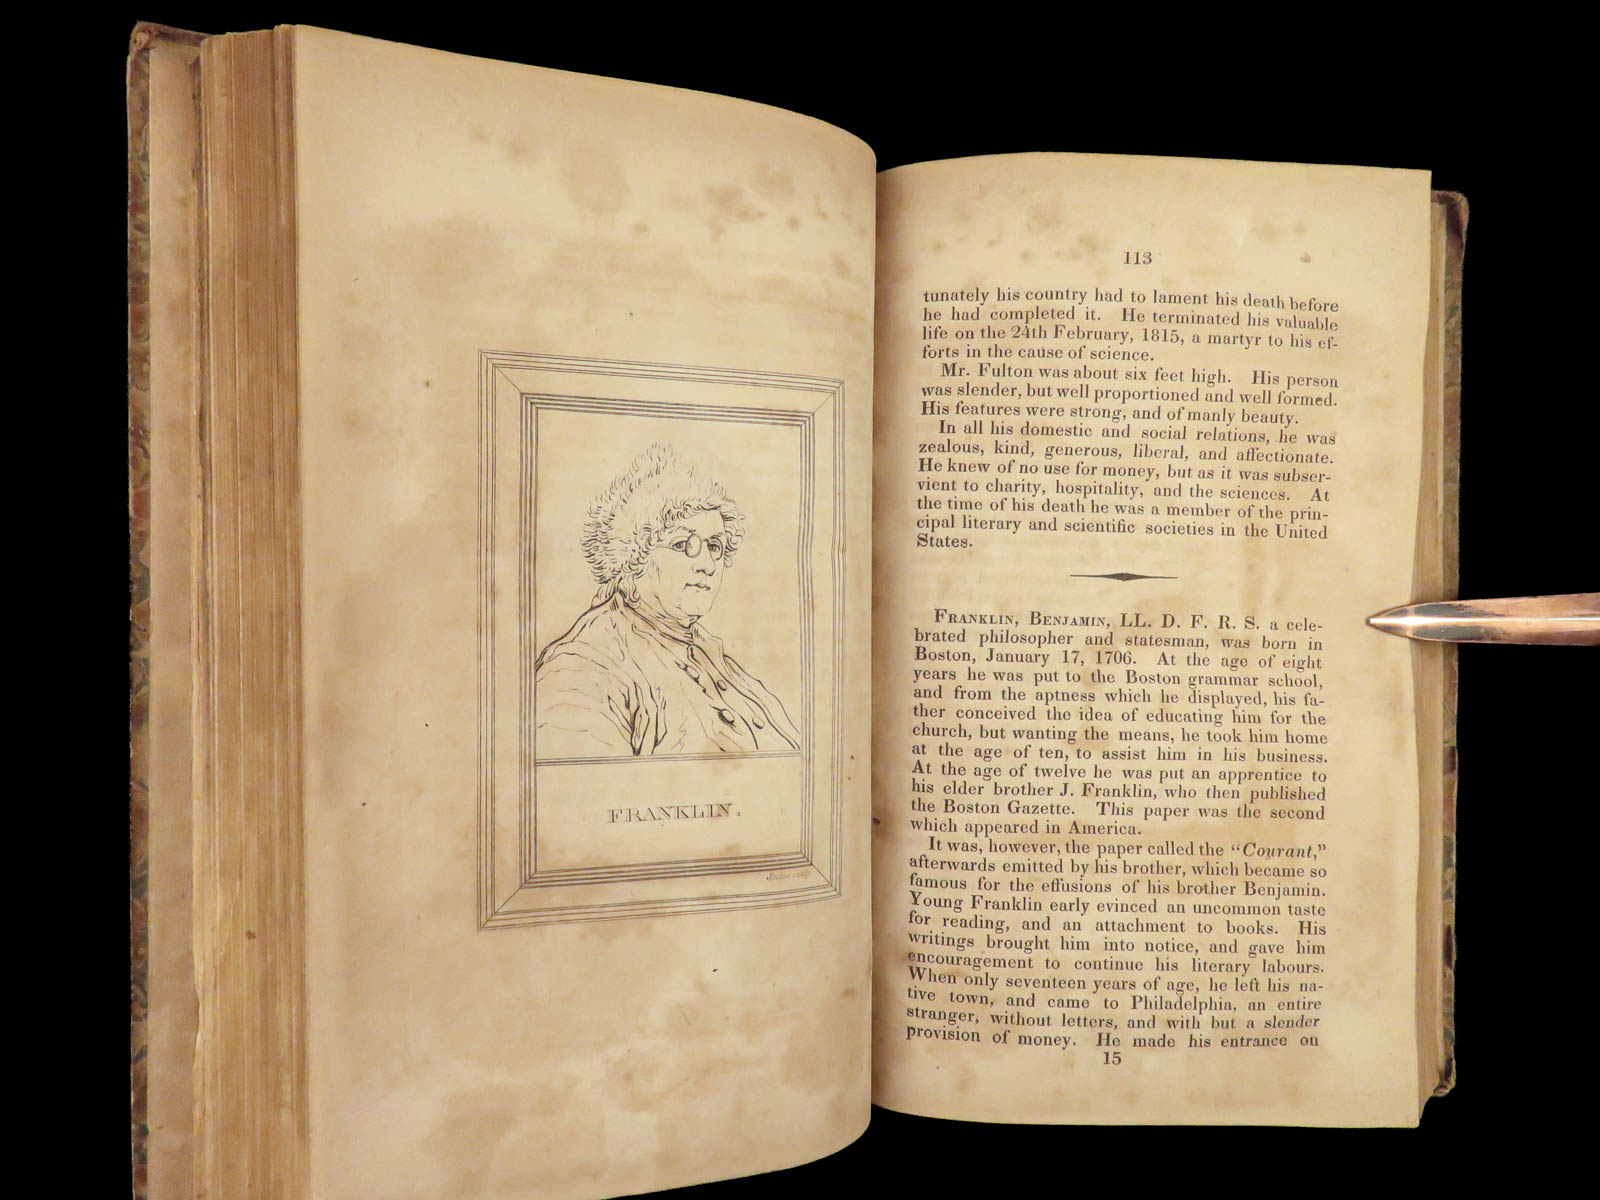 FRANKLIN.
113
tunately his country had to lament his death before
he had completed it. He terminated his valuable
life on the 24th February, 1815, a martyr to his ef-
forts in the cause of science.
Mr. Fulton was about six feet high. His person
was slender, but well proportioned and well formed.
His features were strong, and of manly beauty.
In all his domestic and social relations, he was
zealous, kind, generous, liberal, and affectionate.
He knew of no use for money, but as it was subser-
vient to charity, hospitality, and the sciences. At
the time of his death he was a member of the prin-
cipal literary and scientific societies in the United
States.
FRANKLIN, BENJAMIN, LL. D. F. R. S. a cele-
brated philosopher and statesman, was born in
Boston, January 17, 1706. At the age of eight
years he was put to the Boston grammar school,
and from the aptness which he displayed, his fa-
ther conceived the idea of educating him for the
church, but wanting the means, he took him home
at the age of ten, to assist him in his business.
At the age of twelve he was put an apprentice to
his elder brother J. Franklin, who then published
the Boston Gazette. This paper was the second
which appeared in America.
It was, however, the paper called the "Courant,"
afterwards emitted by his brother, which became so
famous for the effusions of his brother Benjamin.
Young Franklin early evinced an uncommon taste
for reading, and an attachment to books. His
writings brought him into notice, and gave him
encouragement to continue his literary labours.
When only seventeen years of age, he left his na-
tive town, and came to Philadelphia, an entire
stranger, without letters, and with but a slender
provision of money. He made his entrance on
15